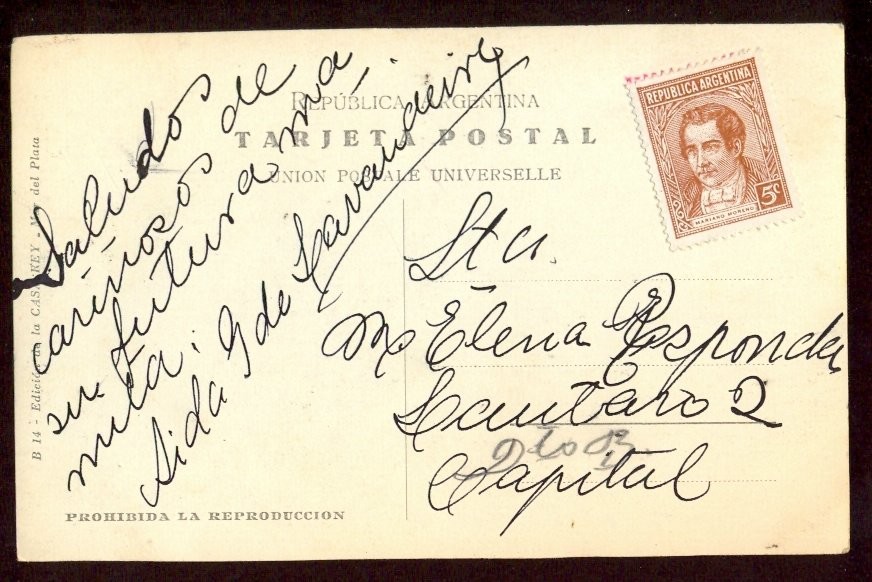 REPÚBLICA ARGENTINA
TARJETA POSTAL
UNION POSTALE UNIVERSELLE
REPUBLICA ARGENTINA
5c
MARIANO MORENO
Saludos
cariñosos de
su futura ma,
mita.
Aida G de Lavandeira
Sta.
M Elena Responda
Lautaro 2
2
Capital
B 14 - Edición de la CASA KEY - Mar del Plata
PROHIBIDA LA REPRODUCCION